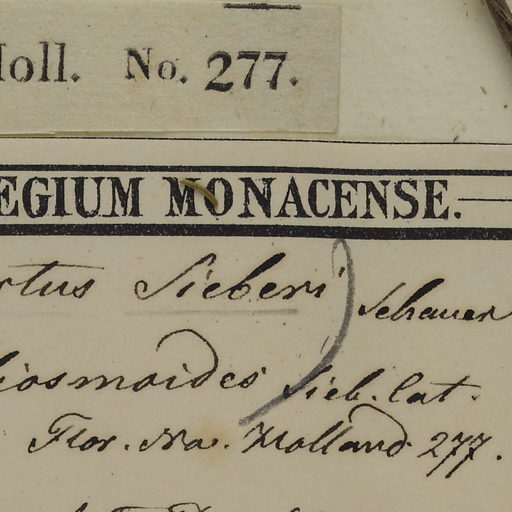 oll. No. 277.
EGIUM MONACENSE.
rtus Sieberi Schauer
iosmoides Sieb. Cat.
Flor. No. Holland 277.